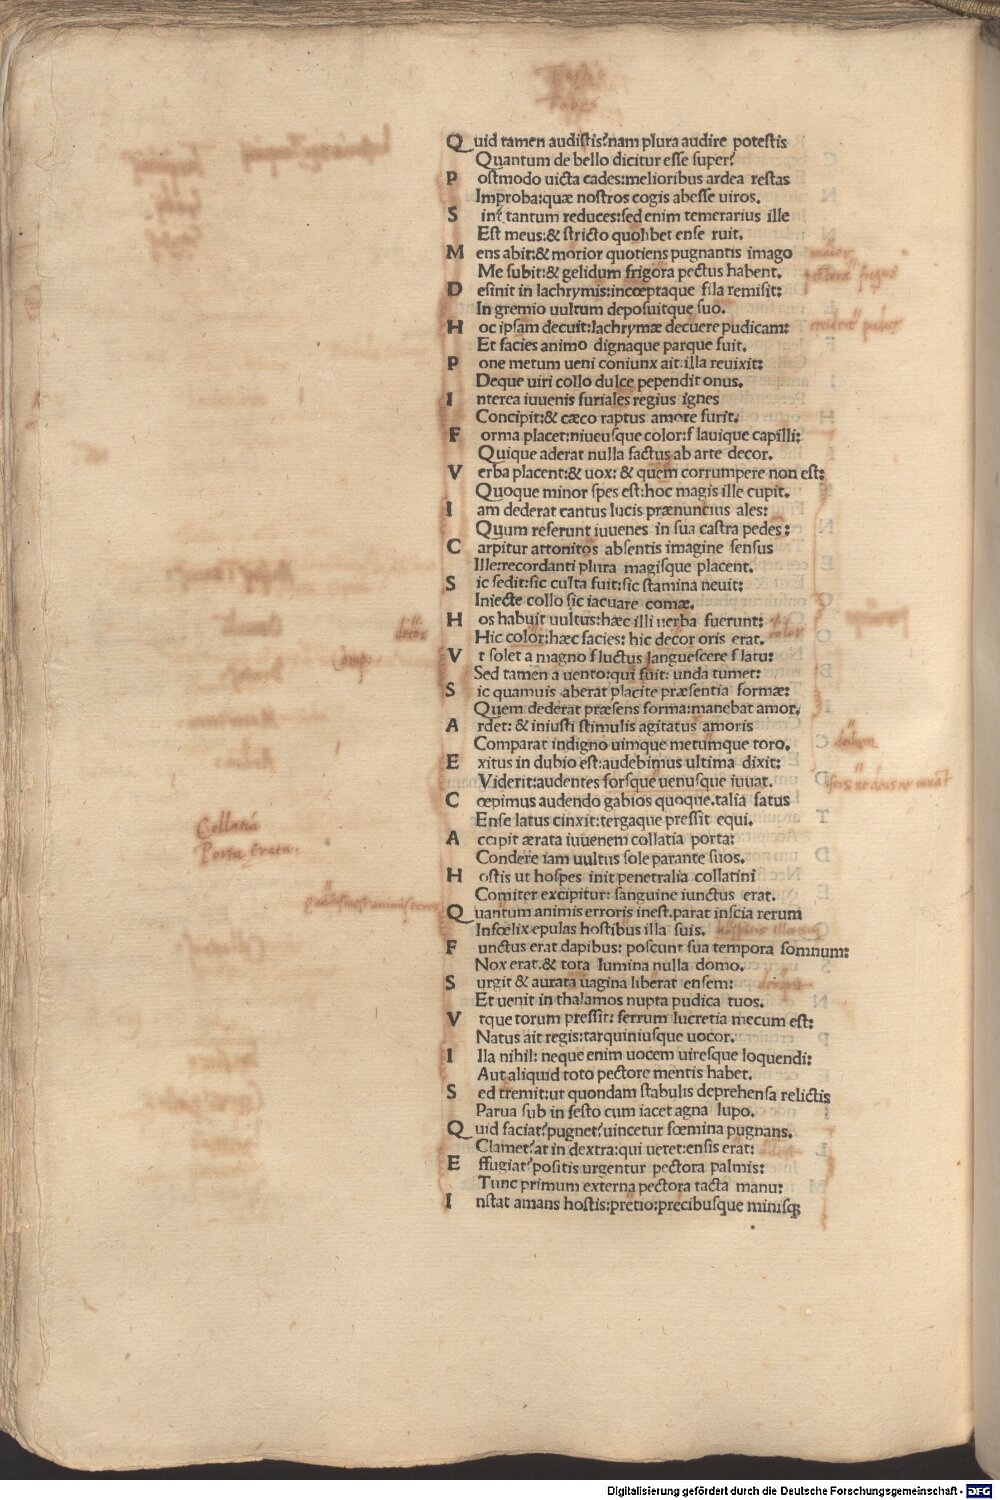 Quid tamen audistis?nam plura audire potestis
Quantum de bello dicitur esse super?
Postmodo uicta cades:melioribus ardea restas
Improba:quæ nostros cogis abesse uiros.
Sint tantum reduces:sed enim temerarius ille
Est meus:& stricto quolibet ense ruit.
Mens abit:& morior quotiens pugnantis imago
Me subit:& gelidum frigora pectus habent.
Desinit in lachrymis:incœptaque fila remisit:
In gremio uultum deposuitque suo.
Hoc ipsam decuit:lachrymæ decuere pudicam:
Et facies animo dignaque parque fuit.
Pone metum ueni coniunx ait.illa reuixit:
Deque uiri collo dulce pependit onus.
Interea iuuenis furiales regius ignes
Concipit:& cæco raptus amore furit.
Forma placet:niueusque color:flauique capilli:
Quique aderat nulla factus ab arte decor.
Verba placent:& uox: & quem corrumpere non est:
Quoque minor spes est:hoc magis ille cupit.
Iam dederat cantus lucis prænuncius ales:
Quum referunt iuuenes in sua castra pedes:
Carpitur attonitos absentis imagine sensus
Ille:recordanti plura magisque placent.
Sic sedit:sic culta fuit:sic stamina neuit:
Iniecte collo sic iacuare comæ.
Hos habuit uultus:hæc illi uerba fuerunt:
Hic color:hæc facies: hic decor oris erat.
decor
Vt solet a magno fluctus languescere flatu:
Comp.
Sed tamen a uento:qui fuit: unda tumet:
Sic quamuis aberat placite præsentia formæ:
Quem dederat præsens forma:manebat amor.
Ardet: & iniusti stimulis agitatus amoris
Comparat indigno uimque metumque toro.
Exitus in dubio est:audebimus ultima dixit:
Viderit:audentes forsque uenusque iuuat.
Cœpimus audendo gabios quoque.talia fatus
Ense latus cinxit:tergaque pressit equi.
Collatia
Porta
Accipit ærata iuuenem collatia porta:
Condere iam uultus sole parante suos.
Hostis ut hospes init penetralia collatini
Comiter excipitur: sanguine iunctus erat.
Quantum animis erroris inest.parat inscia rerum
Infœlix epulas hostibus illa suis.
Functus erat dapibus: poscunt sua tempora somnum:
Nox erat.& tota lumina nulla domo.
Surgit & aurata uagina liberat ensem:
Et uenit in thalamos nupta pudica tuos.
Vtque torum pressit: ferrum lucretia mecum est:
Natus ait regis:tarquiniusque uocor.
Illa nihil: neque enim uocem uiresque loquendi:
Aut aliquid toto pectore mentis habet.
Sed tremit:ut quondam stabulis deprehensa relictis
Parua sub infesto cum iacet agna lupo.
Quid faciat?pugnet?uincetur fœmina pugnans.
Clamet?at in dextra:qui uetet:ensis erat:
Effugiat?positis urgentur pectora palmis:
Tunc primum externa pectora tacta manu:
Instat amans hostis:pretio:precibusque minisq;
Digitalisierung gefördert durch die Deutsche Forschungsgemeinschaft - DFG